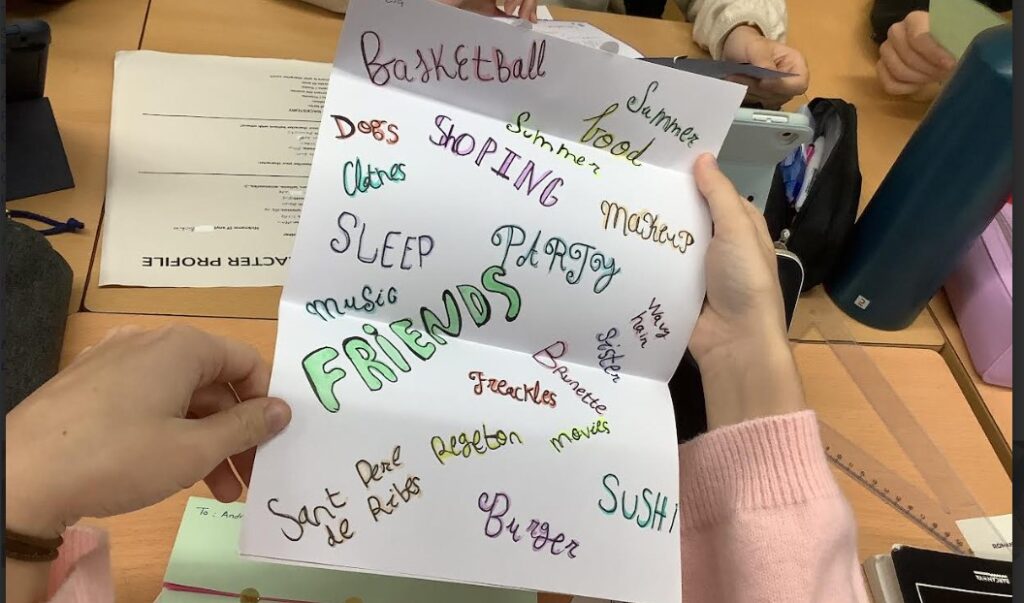 Basketball
Summer
food
Dogs
SHOPING
Summer
Clothes
Makeup
SLEEP
PARTy
Music
FRIENDS
Wavy
hair
Sister
Brunette
Freackles
Regeton
movies
Sant Pere
de Ribes
Burger
SUSHI
To: And
ACTER PROFILE